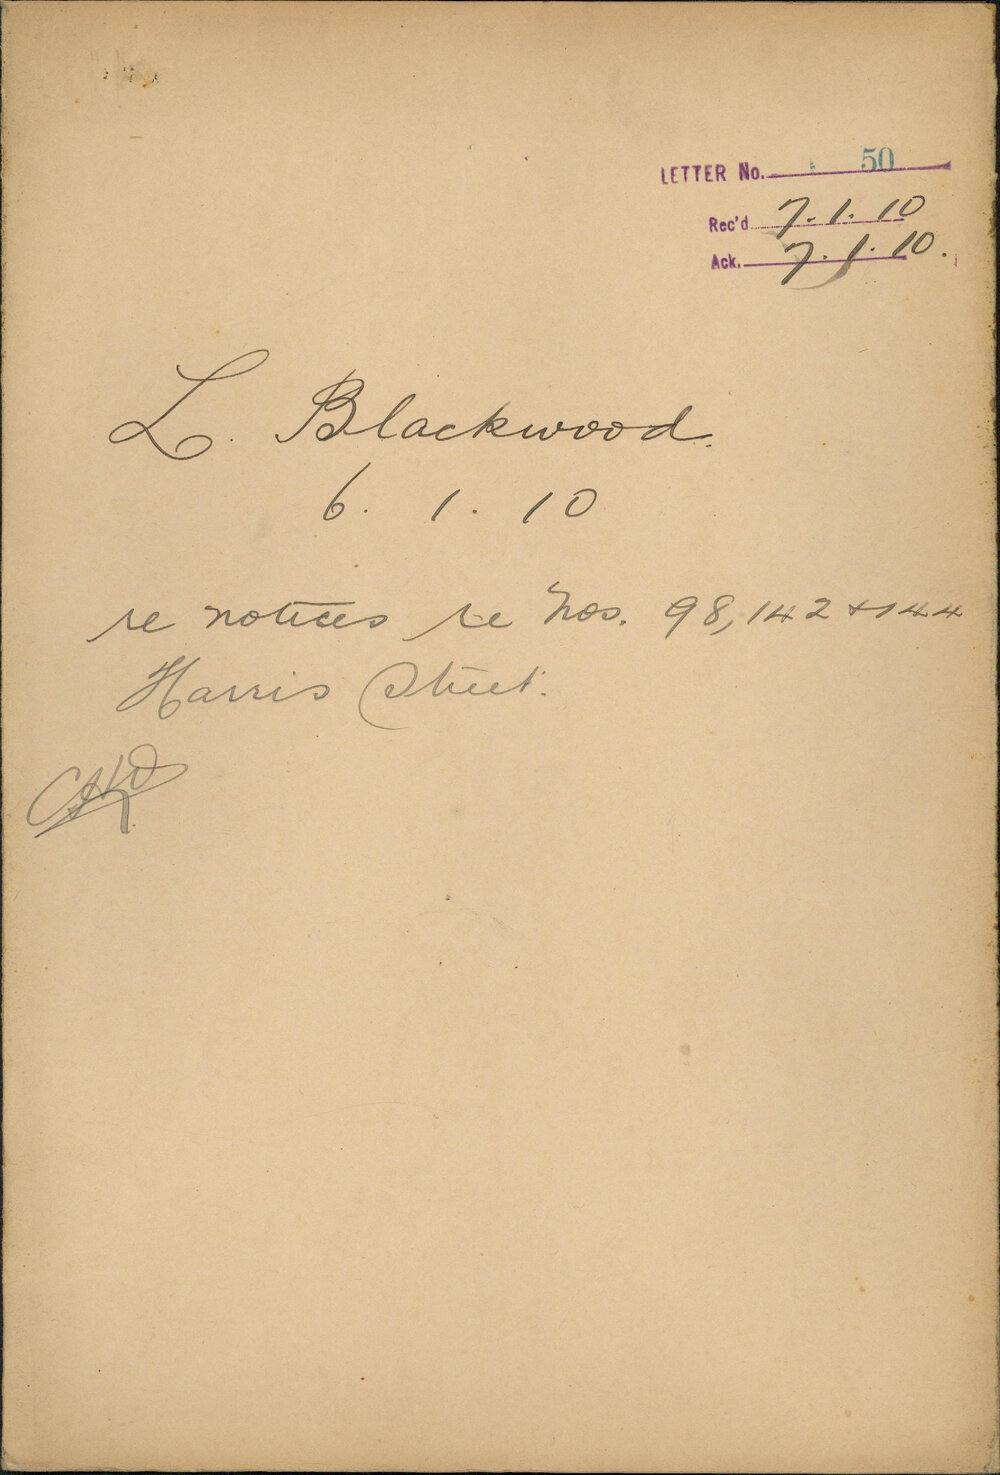 LETTER No. 50
Rec'd 7.1.10
Ack. 7.1.10.
L. Blackwood.
6.1.10
re notices re Nos. 98, 142 & 144
Harris Street.